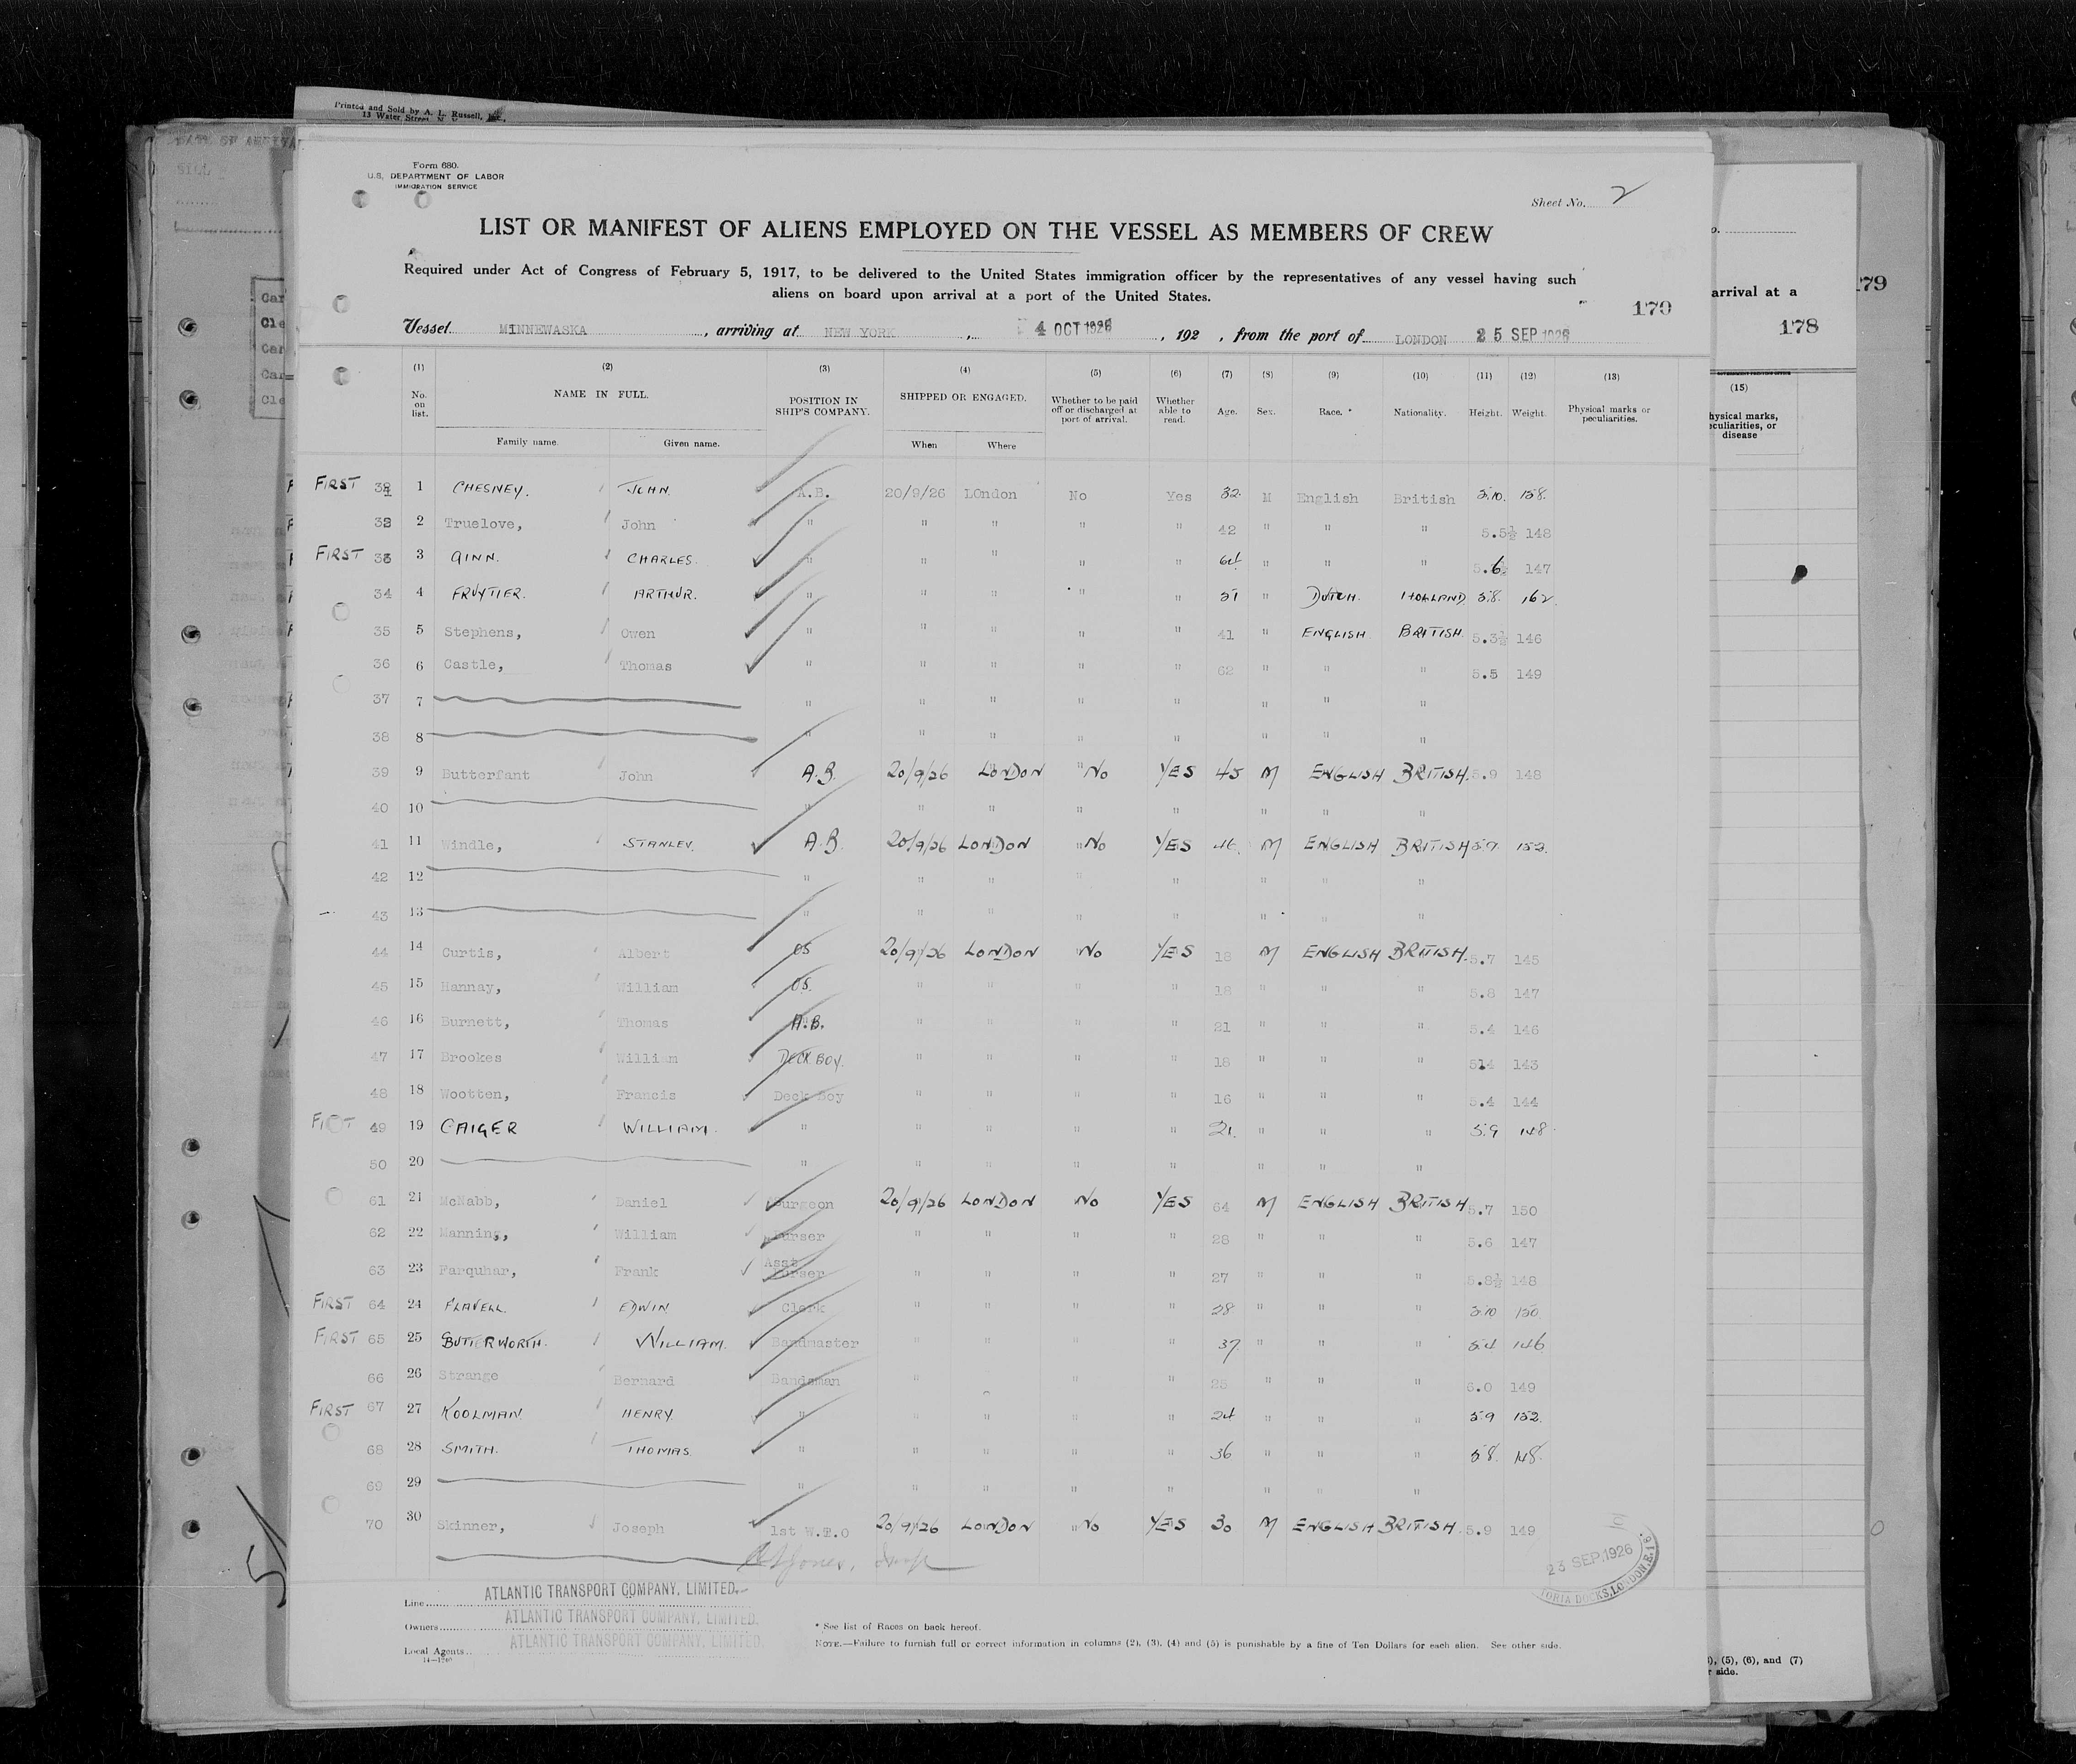 Printed and Sold by A. L. Russell,
13 Water Street
Form 680.
U.S. DEPARTMENT OF LABOR
IMMIGRATION SERVICE
Sheet No. 2
LIST OR MANIFEST OF ALIENS EMPLOYED ON THE VESSEL AS MEMBERS OF CREW
Required under Act of Congress of February 5, 1917, to be delivered to the United States immigration officer by the representatives of any vessel having such
aliens on board upon arrival at a port of the United States.
179
Vessel MINNEWASKA, arriving at NEW YORK, 4 OCT 1926, 192 , from the port of LONDON 25 SEP 1926
(1) (2) (3) (4) (5) (6) (7) (8) (9) (10) (11) (12) (13)
No. on list. NAME IN FULL. POSITION IN SHIP'S COMPANY. SHIPPED OR ENGAGED. Whether to be paid off or discharged at port of arrival. Whether able to read. Age. Sex. Race. * Nationality. Height. Weight. Physical marks or peculiarities.
Family name. Given name. When Where
FIRST 1 CHESNEY. JOHN. A.B. 20/9/26 LOndon No Yes 32. M English British 5.10. 158.
32 2 Truelove, John " " " " " 42 " " " 5.5½ 148
FIRST 33 3 GINN. CHARLES. " " " " " 64 " " " 5.6½ 147
34 4 FRUYTIER. ARTHUR. " " " " " " DUTCH. HOLLAND 5.8. 162.
35 5 Stephens, Owen " " " " " 41 " ENGLISH. BRITISH. 5.3½ 146
36 6 Castle, Thomas " " " " " 62 " " " 5.5 149
37 7 " " " " " " " "
38 8 " " " " " " "
39 9 Butterfant John A.B. 20/9/26 LONDON "No YES 45 M ENGLISH BRITISH. 5.9 148
40 10 " " " " " " " "
41 11 Windle, STANLEY. A.B. 20/9/26 LONDON "No YES 46. M ENGLISH BRITISH 5.9. 152.
42 12 " " " " " " " "
43 13 " " " " " " " "
44 14 Curtis, Albert OS 20/9/26 LONDON "No YES 18 M ENGLISH BRITISH. 5.7 145
45 15 Hannay, William OS. " " " " 18 " " " 5.8 147
46 16 Burnett, Thomas A.B. " " " " 21 " " " 5.4 146
47 17 Brookes William DECK BOY. " " " " 18 " " " 514 143
48 18 Wootten, Francis Deck Boy " " " " 16 " " " 5.4 144
FIRST 49 19 CAIGER WILLIAM. " " " " " 21. " " " 5.9 148.
50 20 " " " " " " " "
61 21 McNabb, Daniel Surgeon 20/9/26 LONDON No YES 64 M ENGLISH BRITISH 5.7 150
62 22 Manning, William Purser " " " " 28 " " " 5.6 147
63 23 Farquhar, Frank Asst Purser " " " " 27 " " " 5.8½ 148
FIRST 64 24 FLAVELL. EDWIN Clerk " " " " 28 " " " 5.10 150.
FIRST 65 25 BUTTERWORTH. WILLIAM. Bandmaster " " " " 37 " " " 5.4 146
66 26 Strange Bernard Bandsman " " " " 25 " " " 149
FIRST 67 27 KOOLMAN. HENRY. " " " " " 24 " " " 5.9 152.
68 28 SMITH. THOMAS. " " " " " 36 " " " 5.8. 148.
69 29 " " " " " " " "
70 30 Skinner, Joseph 1st W.T.O 20/9/26 LONDON "No YES 30 M ENGLISH BRITISH. 5.9 149
23 SEP. 1926
DOCKS, LONDON, E.16.
Line ATLANTIC TRANSPORT COMPANY, LIMITED.
Owners ATLANTIC TRANSPORT COMPANY, LIMITED.
Local Agents ATLANTIC TRANSPORT COMPANY, LIMITED.
14—1240
* See list of Races on back hereof.
NOTE.—Failure to furnish full or correct information in columns (2), (3), (4) and (5) is punishable by a fine of Ten Dollars for each alien. See other side.
arrival at a
179
178
(15)
hysical marks,
eculiarities, or
disease
), (5), (6), and (7)
r side.